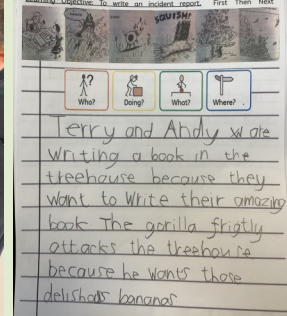 Learning Objective: To write an incident report. First Then Next
SQUISH!
Who? Doing? What? Where?
Terry and Andy are
writing a book in the
treehouse because they
want to write their amazing
book The gorilla frigtly
attacks the treehouse
because he wants those
delishous bananas